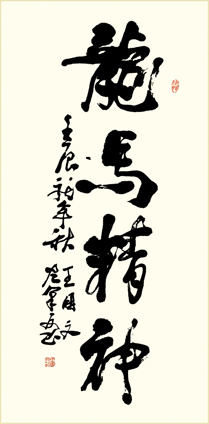 龍馬精神
壬辰龍年秋
王國文